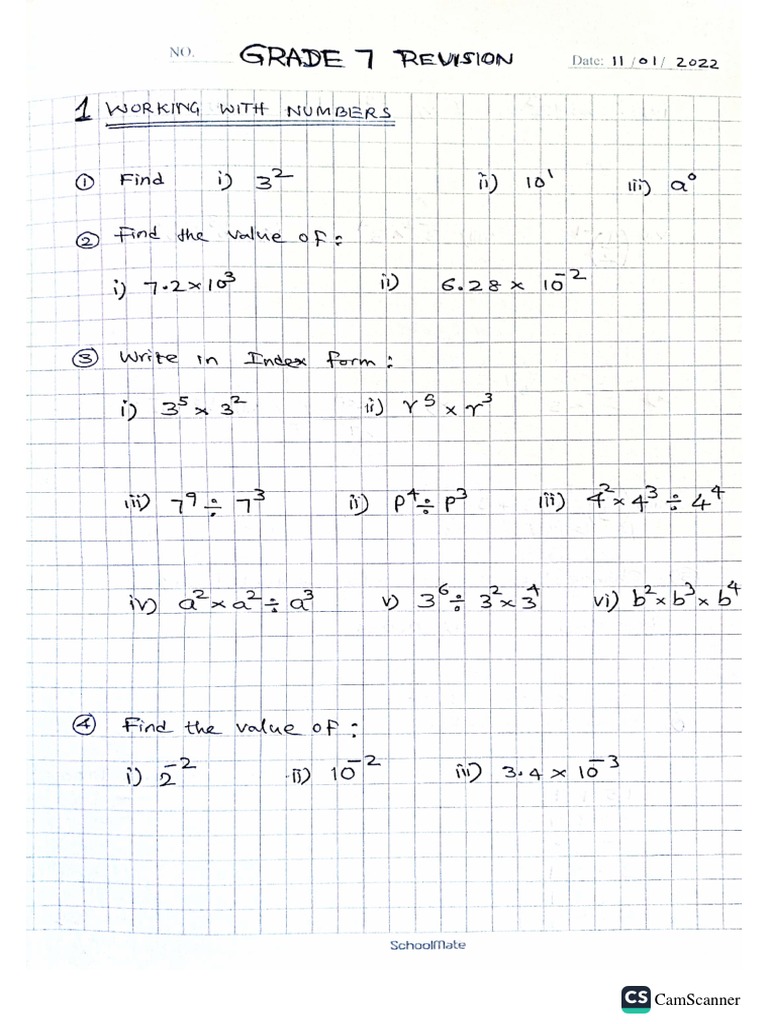 NO. GRADE 7 REVISION Date: 11/01/2022
1 WORKING WITH NUMBERS
① Find i) 3² ii) 10¹ iii) a⁰
② Find the value of:
i) 7.2 × 10³ ii) 6.28 × 10⁻²
③ Write in Index form:
i) 3⁵ × 3² ii) r⁵ × r³
iii) 7⁹ ÷ 7³ ii) p⁴ ÷ p³ iii) 4² × 4³ ÷ 4⁴
iv) a² × a² ÷ a³ v) 3⁶ ÷ 3² × 3⁴ vi) b² × b³ × b⁴
④ Find the value of:
i) 2⁻² ii) 10⁻² iii) 3.4 × 10⁻³
SchoolMate
CS CamScanner